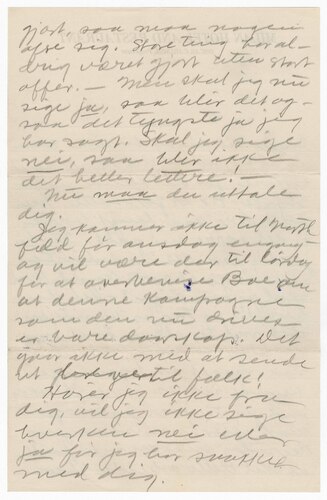 gjort saa maa nogen
ofre sig. Store ting har al-
drig været gjort uten stort
offer. — Men skal jeg nu
sige ja, saa blir det og-
saa det tyngste ja jeg
har sagt. Skal jeg sige
nei, saa blir ikke
det heller lettere! —
Nu maa du uttale
dig.
Jeg kommer ikke til North-
field før onsdag
og vil være der til lørdag
for at overbevise Boe om
at denne kampagne
som den nu drives
er bare daarskap. Det
gaar ikke med at sende
ut til folk!
Hører jeg ikke fra
dig, vil jeg ikke sige
hverken nei eller
ja før jeg har snakket
med dig.